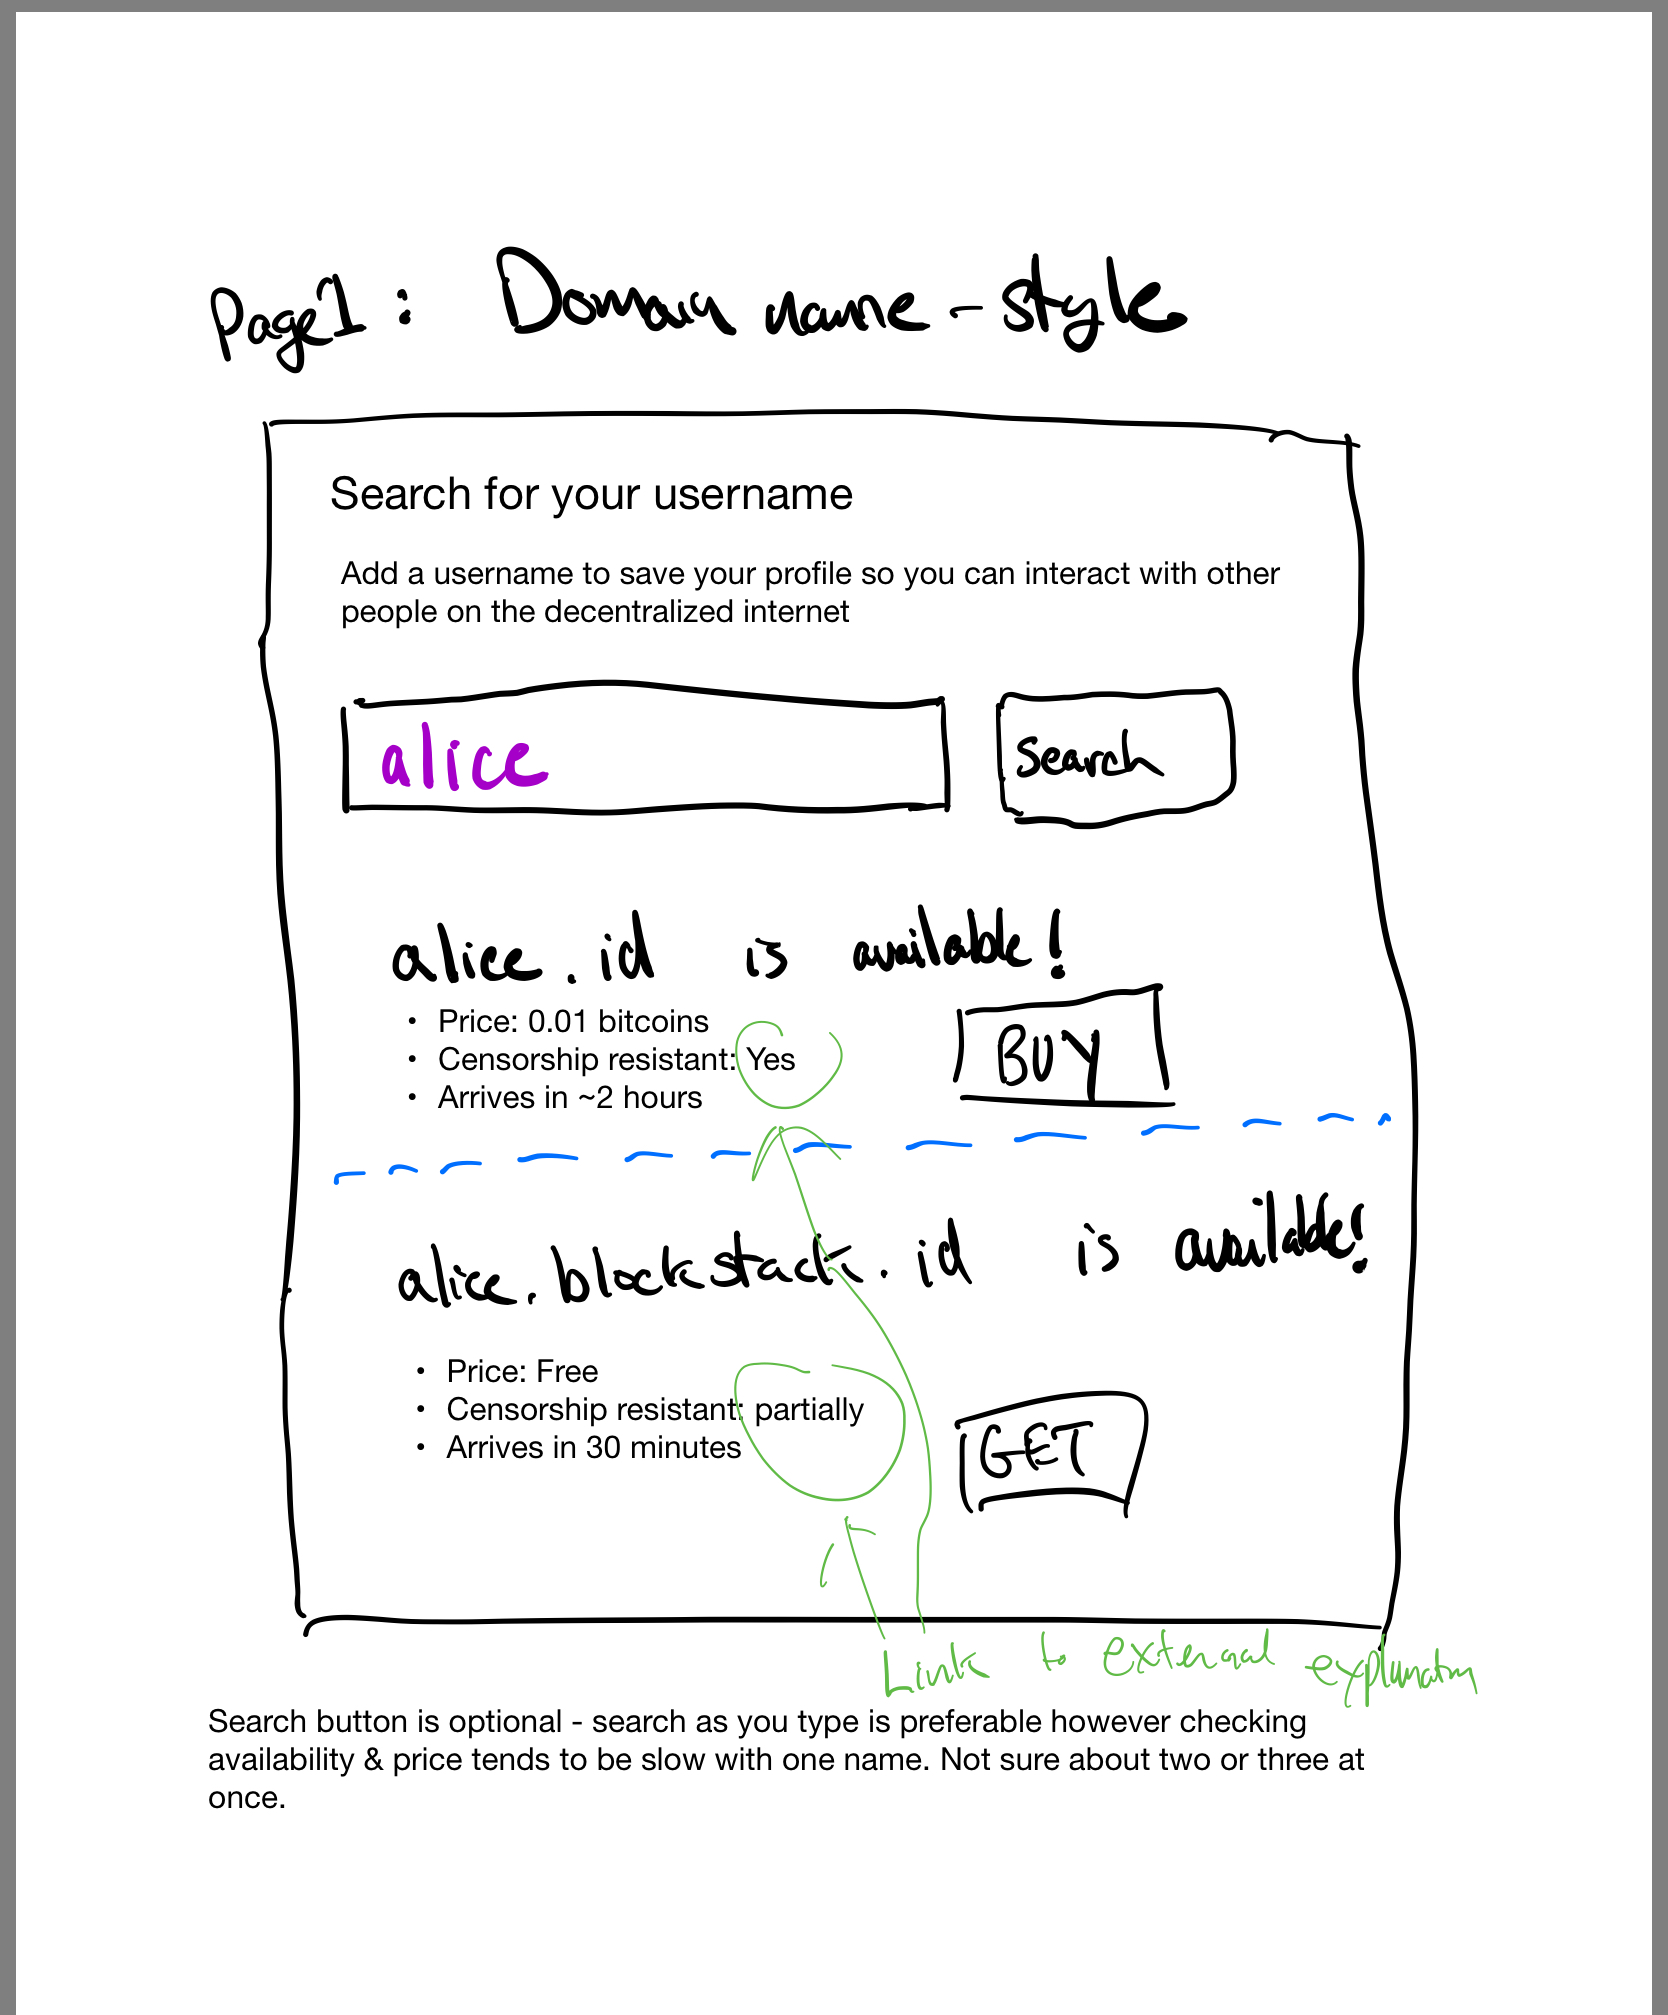 Page 1: Domain name-style
Search for your username
Add a username to save your profile so you can interact with other
people on the decentralized internet
alice
search
alice.id is available!
• Price: 0.01 bitcoins
• Censorship resistant: Yes
• Arrives in ~2 hours
BUY
alice.blockstack.id is available!
• Price: Free
• Censorship resistant: partially
• Arrives in 30 minutes
GET
Link to external explanation
Search button is optional - search as you type is preferable however checking
availability & price tends to be slow with one name. Not sure about two or three at
once.